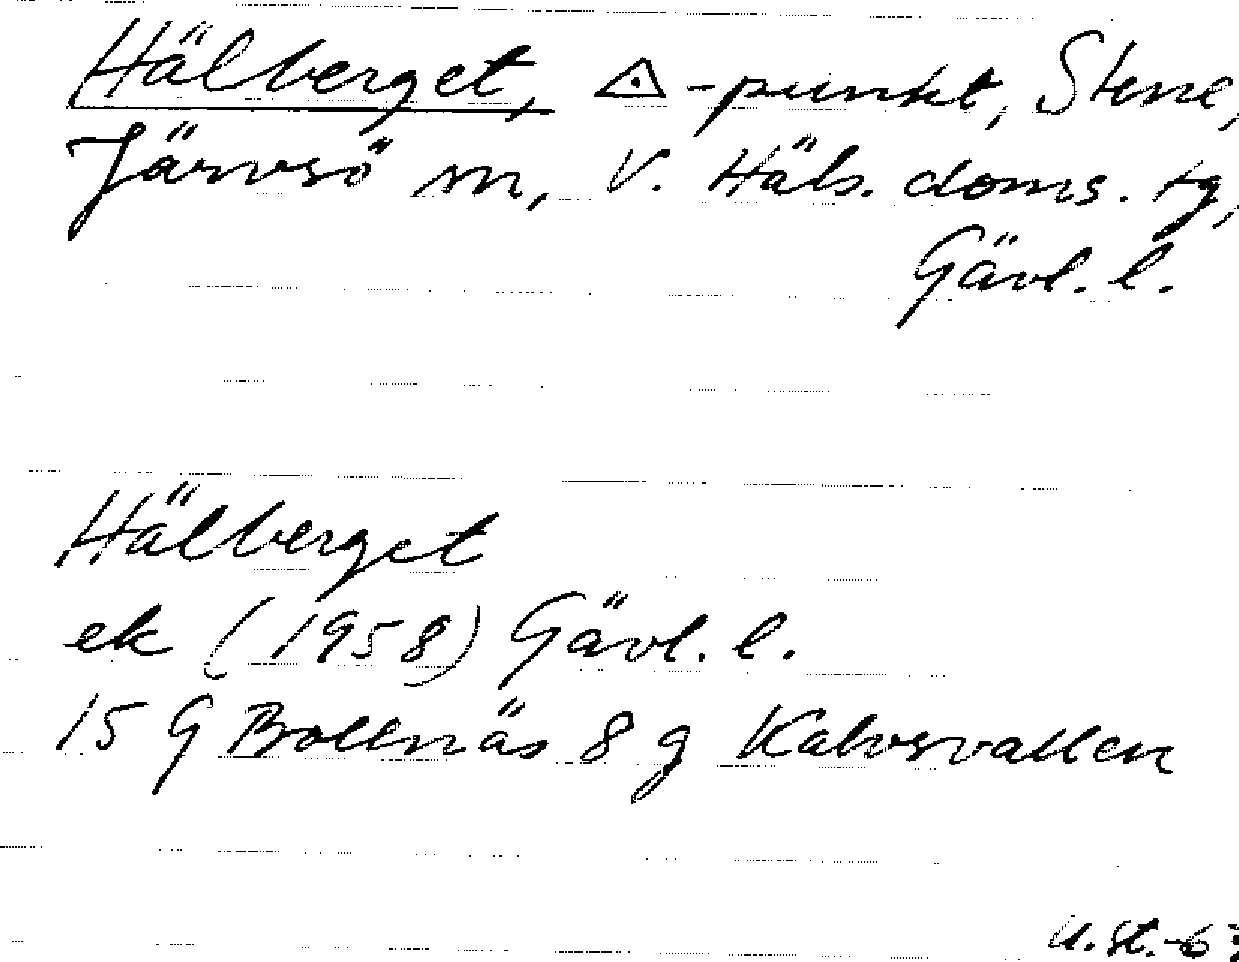 Hälberget, △-punkt, Stene,
Järvsö sn, V. Häls. doms. tg,
Gävl. l.
Hälberget
ek (1958) Gävl. l.
15 G Bollnäs 8 g Kalvsvallen
U.St.-63